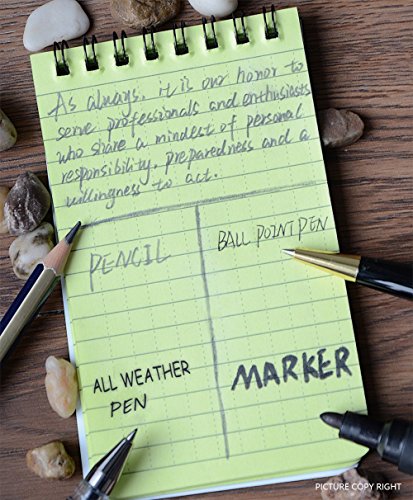 As always, it is our honor to
serve professionals and enthusiasts
who share a mindest of personal
responsibility, preparedness and a
willingness to act.
PENCIL
BALL POINT PEN
ALL WEATHER
PEN
MARKER
PICTURE COPY RIGHT